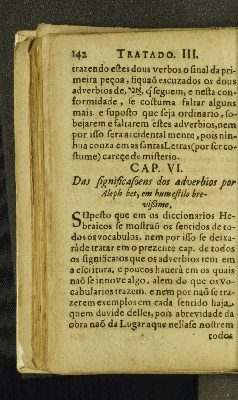 142 TRATADO. III.
trazendo estes dous verbos o sinal da pri-
meira peçoa, fiquaõ escuzados os dous
adverbios de, q̃ seguem, e nesta con-
formidade, se costuma faltar alguns
mais e suposto que seja ordinario, so-
bejarem e faltarem estes adverbios, nem
por isso sera accidentalmente, pois nin-
hua couza em as santas Letras (por ser co-
stume) careçe de misterio.
CAP. VI.
Das significasoens dos adverbios por
Aleph bet, em humestilo bre-
vissimo.
SUpesto que em os diccionarios He-
braicos se mostraõ os sentidos de to-
dos os vocabulos, nem por isso se deixa-
raõ de tratar em o prezente cap. de todos
os significatos que os adverbios tem em
a escitura, e poucos hauerá em os quais
naõ se innove algo, alem do que os vo-
cabularios trazem. e nem por naõ se tra-
zerem exemplos em cada sentido haja
quem duvide delles, pois abrevidade da
obra naõ da Lugar a que nella se mostrem
todos